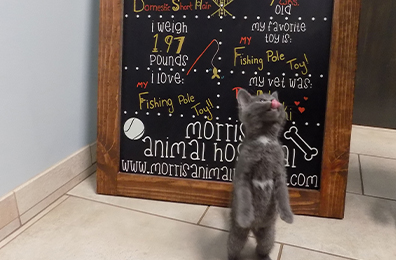 Domestic Short Hair
Wks.
old
I weigh
1.97
pounds
my favorite
toy is:
MY
Fishing Pole
Toy!
I love:
MY
Fishing Pole
Toy!!
my vet was:
morris
animal
www.morrisanimal
.com